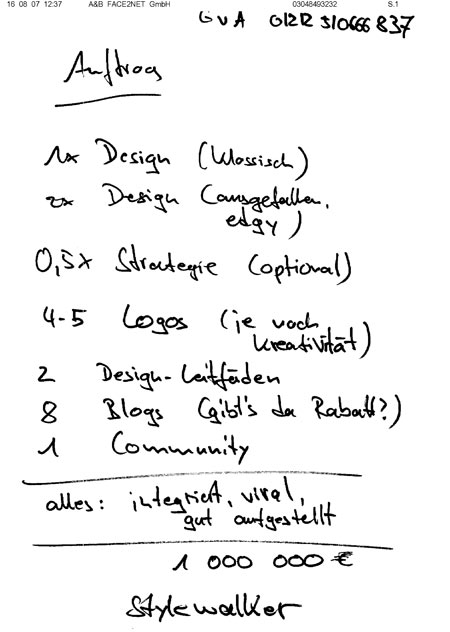 16 08 07 12:37 A&B FACE2NET GmbH 03048493232 S.1
GvA 01212 510666837
Auftrag
1x Design (klassisch)
2x Design (ausgefallen,
edgy)
0,5x Strategie (optional)
4-5 Logos (je nach
Kreativität)
2 Design-Leitfäden
8 Blogs (gibt's da Rabatt?)
1 Community
alles: integriert, viral,
gut aufgestellt
1 000 000 €
Stylewalker